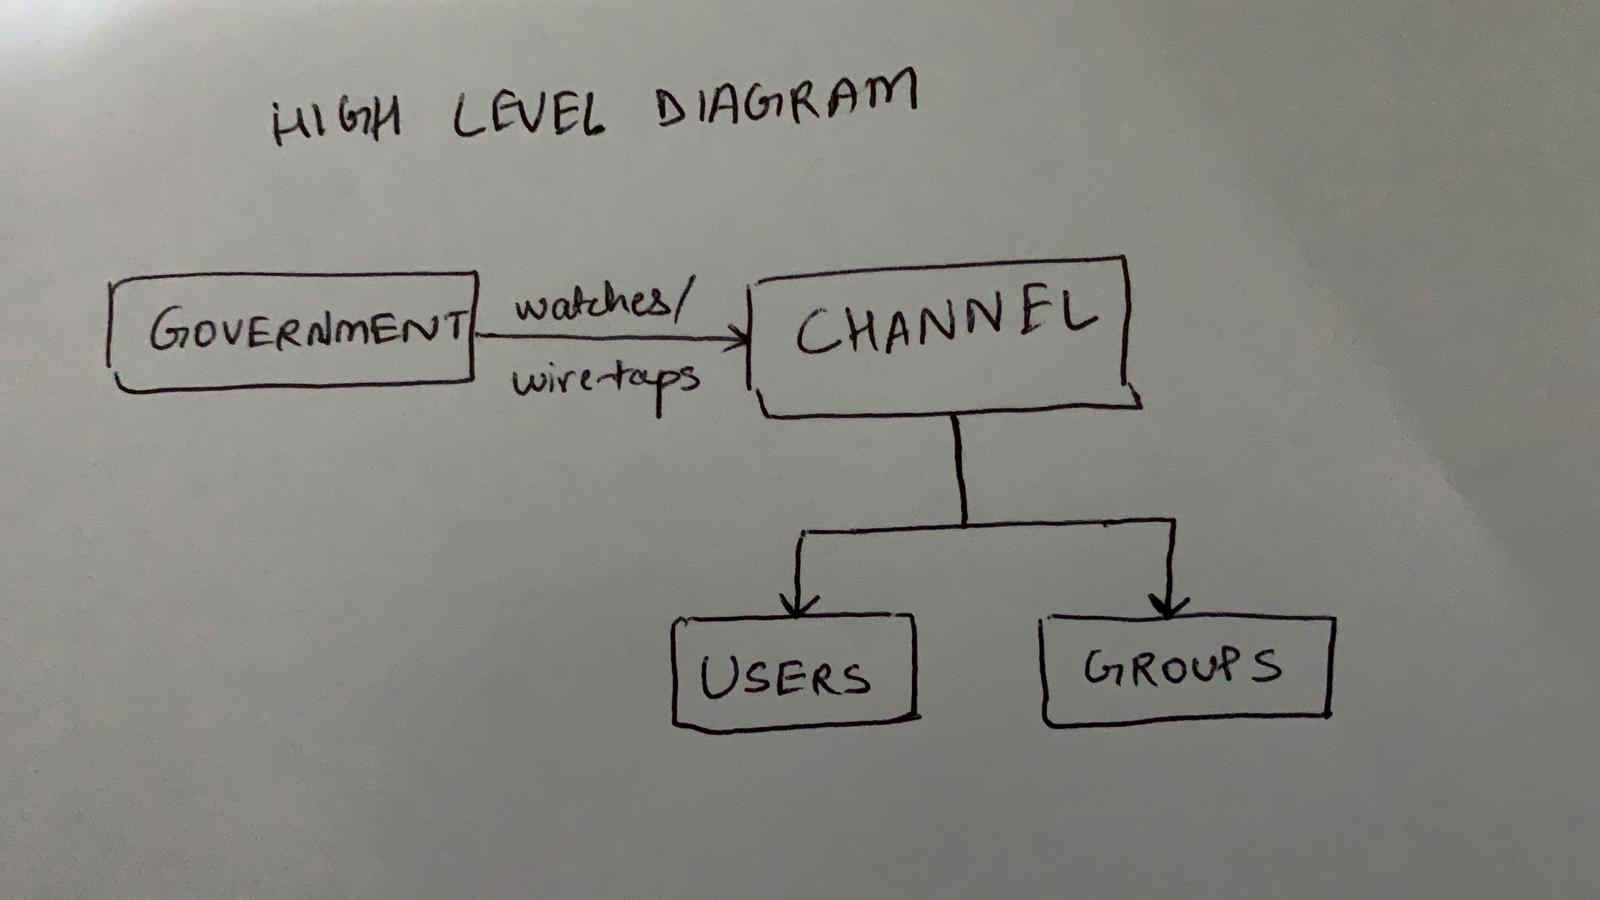 HIGH LEVEL DIAGRAM
GOVERNMENT
watches/
wire-taps
CHANNEL
USERS
GROUPS